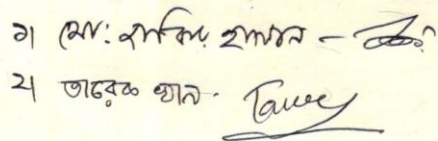 ১। মোঃ হাকিম হাসান -
২। তারেক খান.